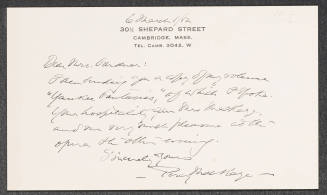 6 March 1/12
30½ SHEPARD STREET
CAMBRIDGE, MASS.
TEL. CAMB. 3043, W
Dear Mrs. Gardner:
I am sending you a copy of my volume
"Yankee Fantasies," of which I spoke.
Your hospitality gave Mrs. MacKaye
and me very much pleasure at the
opera the other evening.
Sincerely yours
Percy MacKaye